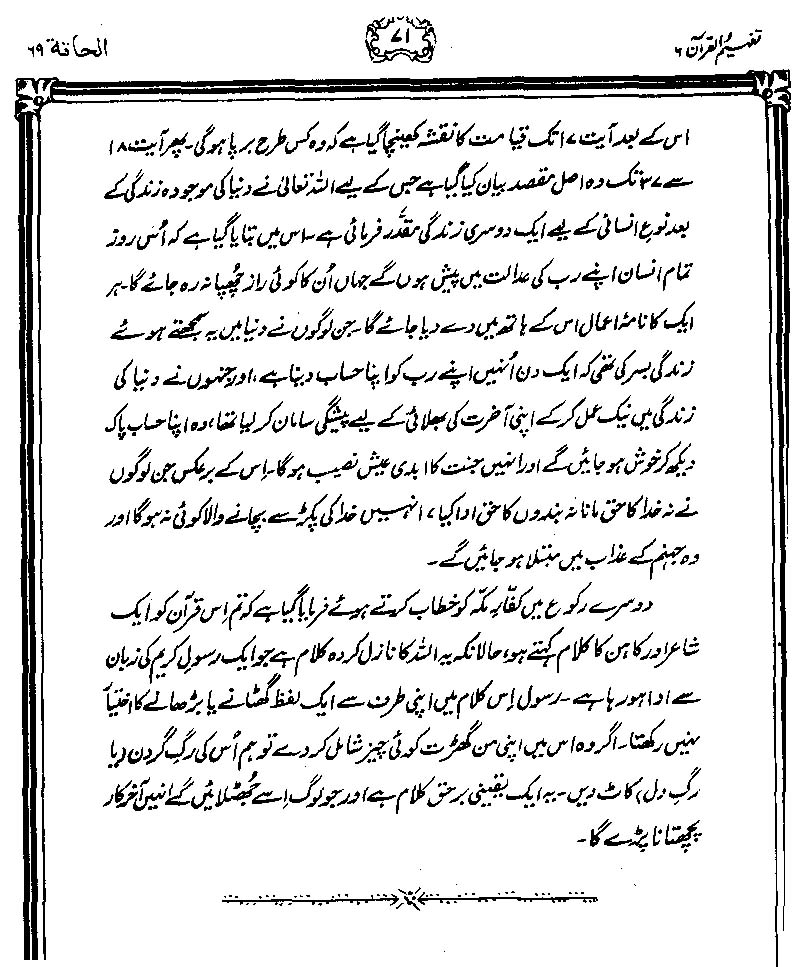 تفہیم القرآن ۶
۷۱
الحاقۃ ۶۹
اس کے بعد آیت ۱۷ تک قیامت کا نقشہ کھینچا گیا ہے کہ وہ کس طرح برپا ہوگی۔ پھر آیت ۱۸
سے ۳۷ تک وہ اصل مقصد بیان کیا گیا ہے جس کے لیے اللہ تعالیٰ نے دنیا کی موجودہ زندگی کے
بعد نوعِ انسانی کے لیے ایک دوسری زندگی مقدَّر فرمائی ہے۔ اس میں بتایا گیا ہے کہ اُس روز
تمام انسان اپنے رب کی عدالت میں پیش ہوں گے جہاں اُن کا کوئی راز چُھپا نہ رہ جائے گا۔ ہر
ایک کا نامۂ اعمال اس کے ہاتھ میں دے دیا جائے گا۔ جن لوگوں نے دنیا میں یہ سمجھتے ہوئے
زندگی بسر کی تھی کہ ایک دن اُنہیں اپنے رب کو اپنا حساب دینا ہے، اور جنہوں نے دنیا کی
زندگی میں نیک عمل کر کے اپنی آخرت کی بھلائی کے لیے پیشگی سامان کر لیا تھا، وہ اپنا حساب پاک
دیکھ کر خوش ہو جائیں گے اور انہیں جنت کا ابدی عیش نصیب ہوگا۔ اِس کے برعکس جن لوگوں
نے نہ خدا کا حق مانا نہ بندوں کا حق ادا کیا، انہیں خدا کی پکڑ سے بچانے والا کوئی نہ ہوگا اور
وہ جہنم کے عذاب میں مبتلا ہو جائیں گے۔
دوسرے رکوع میں کفّارِ مکّہ کو خطاب کرتے ہوئے فرمایا گیا ہے کہ تم اِس قرآن کو ایک
شاعر اور کاہن کا کلام کہتے ہو، حالانکہ یہ اللہ کا نازل کردہ کلام ہے جو ایک رسولِ کریم کی زبان
سے ادا ہو رہا ہے۔ رسول اِس کلام میں اپنی طرف سے ایک لفظ گھٹانے یا بڑھانے کا اختیار
نہیں رکھتا۔ اگر وہ اس میں اپنی من گھڑت کوئی چیز شامل کر دے تو ہم اُس کی رگِ گردن (یا
رگِ دل) کاٹ دیں۔ یہ ایک یقینی برحق کلام ہے اور جو لوگ اِسے جُھٹلائیں گے انہیں آخرکار
پچھتانا پڑے گا۔